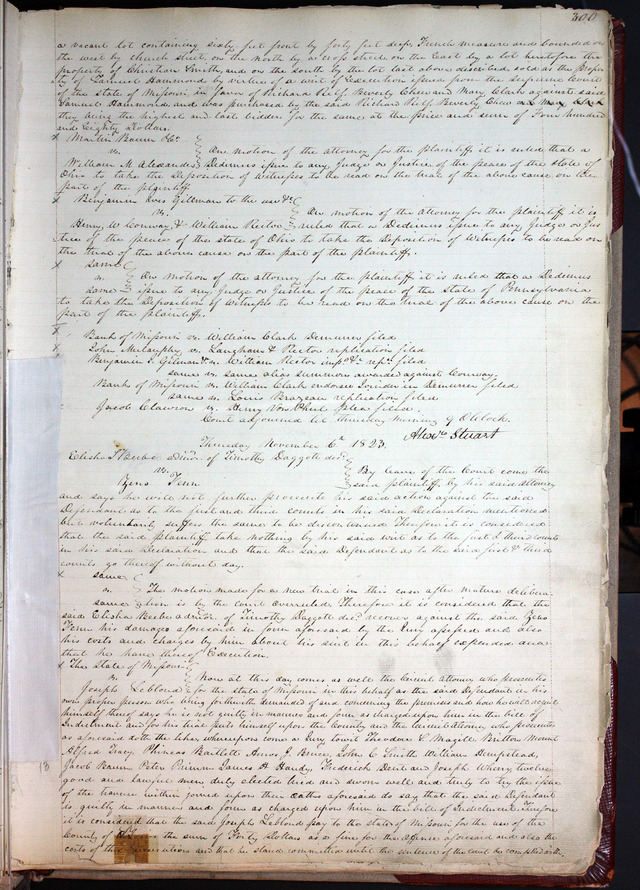 300
a vacant lot containing sixty feet front by forty feet deep French measure and bounded on
the west by church street, on the north by a cross street on the East by a lot heretofore the
property of Christian Smith, and on the south by the lot last above described sold as the proper
ty of Samuel Hammond by virtue of a writ of Execution issued from the supreme Court
of the state of Missouri in favor of Richard Relf, Beverly Chew and Mary Clark against said
Samuel Hammond, and was purchased by the said Richard Relf Beverly Chew & Mary Clark
they being the highest and last bidder for the same at the price and sum of Four hundred
and Eighty Dollars.
x Martin Baum &c
vs. On motion of the attorney for the plaintiff it is ruled that a
William M Alexander Dedimus issue to any Judge or Justice of the peace of the state of
Ohio to take the Deposition of witnesses to be read on the trial of the above cause on the
part of the plaintiff
x Benjamin Ives Gillman to the use &c
vs. On motion of the Attorney for the plaintiff it is
Henry W Conway & William Rector ruled that a Dedimus issue to any Judge or Jus
tice of the peace of the state of Ohio to take the Deposition of witnesses to be read on
the trial of the above cause on the part of the plaintiff.
x same
vs. On motion of the attorney for the plaintiff it is ruled that a Dedimus
same issue to any Judge or Justice of the peace of the state of Pennsylvania
to take the Deposition of witnesses to be read on the trial of the above cause on the
part of the plaintiff.
x Bank of Missouri vs. William Clark Demurrer filed
John vs. Langham & Rector replication filed
Benjamin I. Gilman &c vs. William Rector filed
same vs. same alias summons awarded against Conway.
Bank of Missouri vs. William Clark Joinder in Demurrer filed
same vs. Louis Brazeau replication filed
Jacob Clawson vs. Henry Von Phul pleas filed.
Court adjourned till thursday morning 9 O'Clock.
Alexr Stuart
Thursday November 6th 1823.
Elisha Beebe admor. of Timothy Daggett decd
vs. By leave of the Court come the
Zeno Fenn said plaintiff by his said attorney
and says he will not further prosecute his said action against the said
Defendant as to the first and third counts in his said Declaration mentioned
but voluntarily suffers the same to be discontinued Therefore it is considered
that the said plaintiff take nothing by his said writ as to the first & third counts
in his said Declaration and that the said Defendant as to the said first & third
counts go thereof without day.
x same
vs. The motion made for a new trial in this case after mature delibera
same tion is by the court overruled. Therefore it is considered that the
said Elisha Beebe admor. of Timothy Daggett decd recover against the said Zeno
Fenn his damages aforesaid in form aforesaid by the Jury assessed and also
his costs and charges by him about his suit in this behalf expended and
that he have thereof Execution.
x The State of Missouri
vs. Now at this day comes as well the Circuit attorney who prosecutes
Joseph Leblond for the state of Missouri in this behalf as the said Defendant in his
own proper person who being forthwith demanded of and concerning the premises and how he will acquit
himself thereof says he is not guilty in manner and form as charged upon him in the bill of
Indictment and for his trial puts himself upon the County and the circuit attorney who prosecutes
as aforesaid doth the like, whereupon come a Jury towit Theodore Magill Britton Mount
Alfred Tracy Phineas Bartlett Amos J. Bruce, John C Smith William Dempstead,
Jacob Baum Peter Primm James H Hardy, Frederick Dent and Joseph Wherry twelve
good and lawful men duly elected tried and sworn well and truly to try the issue
of the traverse within joined upon their oaths aforesaid do say that the said Defendant
is guilty in manner and form as charged upon him in the bill of Indictment Therefore
it is considered that the said Joseph Leblond pay to the state of Missouri for the use of the
County of the sum of Forty Dollars as a fine for the offence aforesaid and also the
costs of this prosecution and that he stand committed until the sentence of the court be complied with.
18